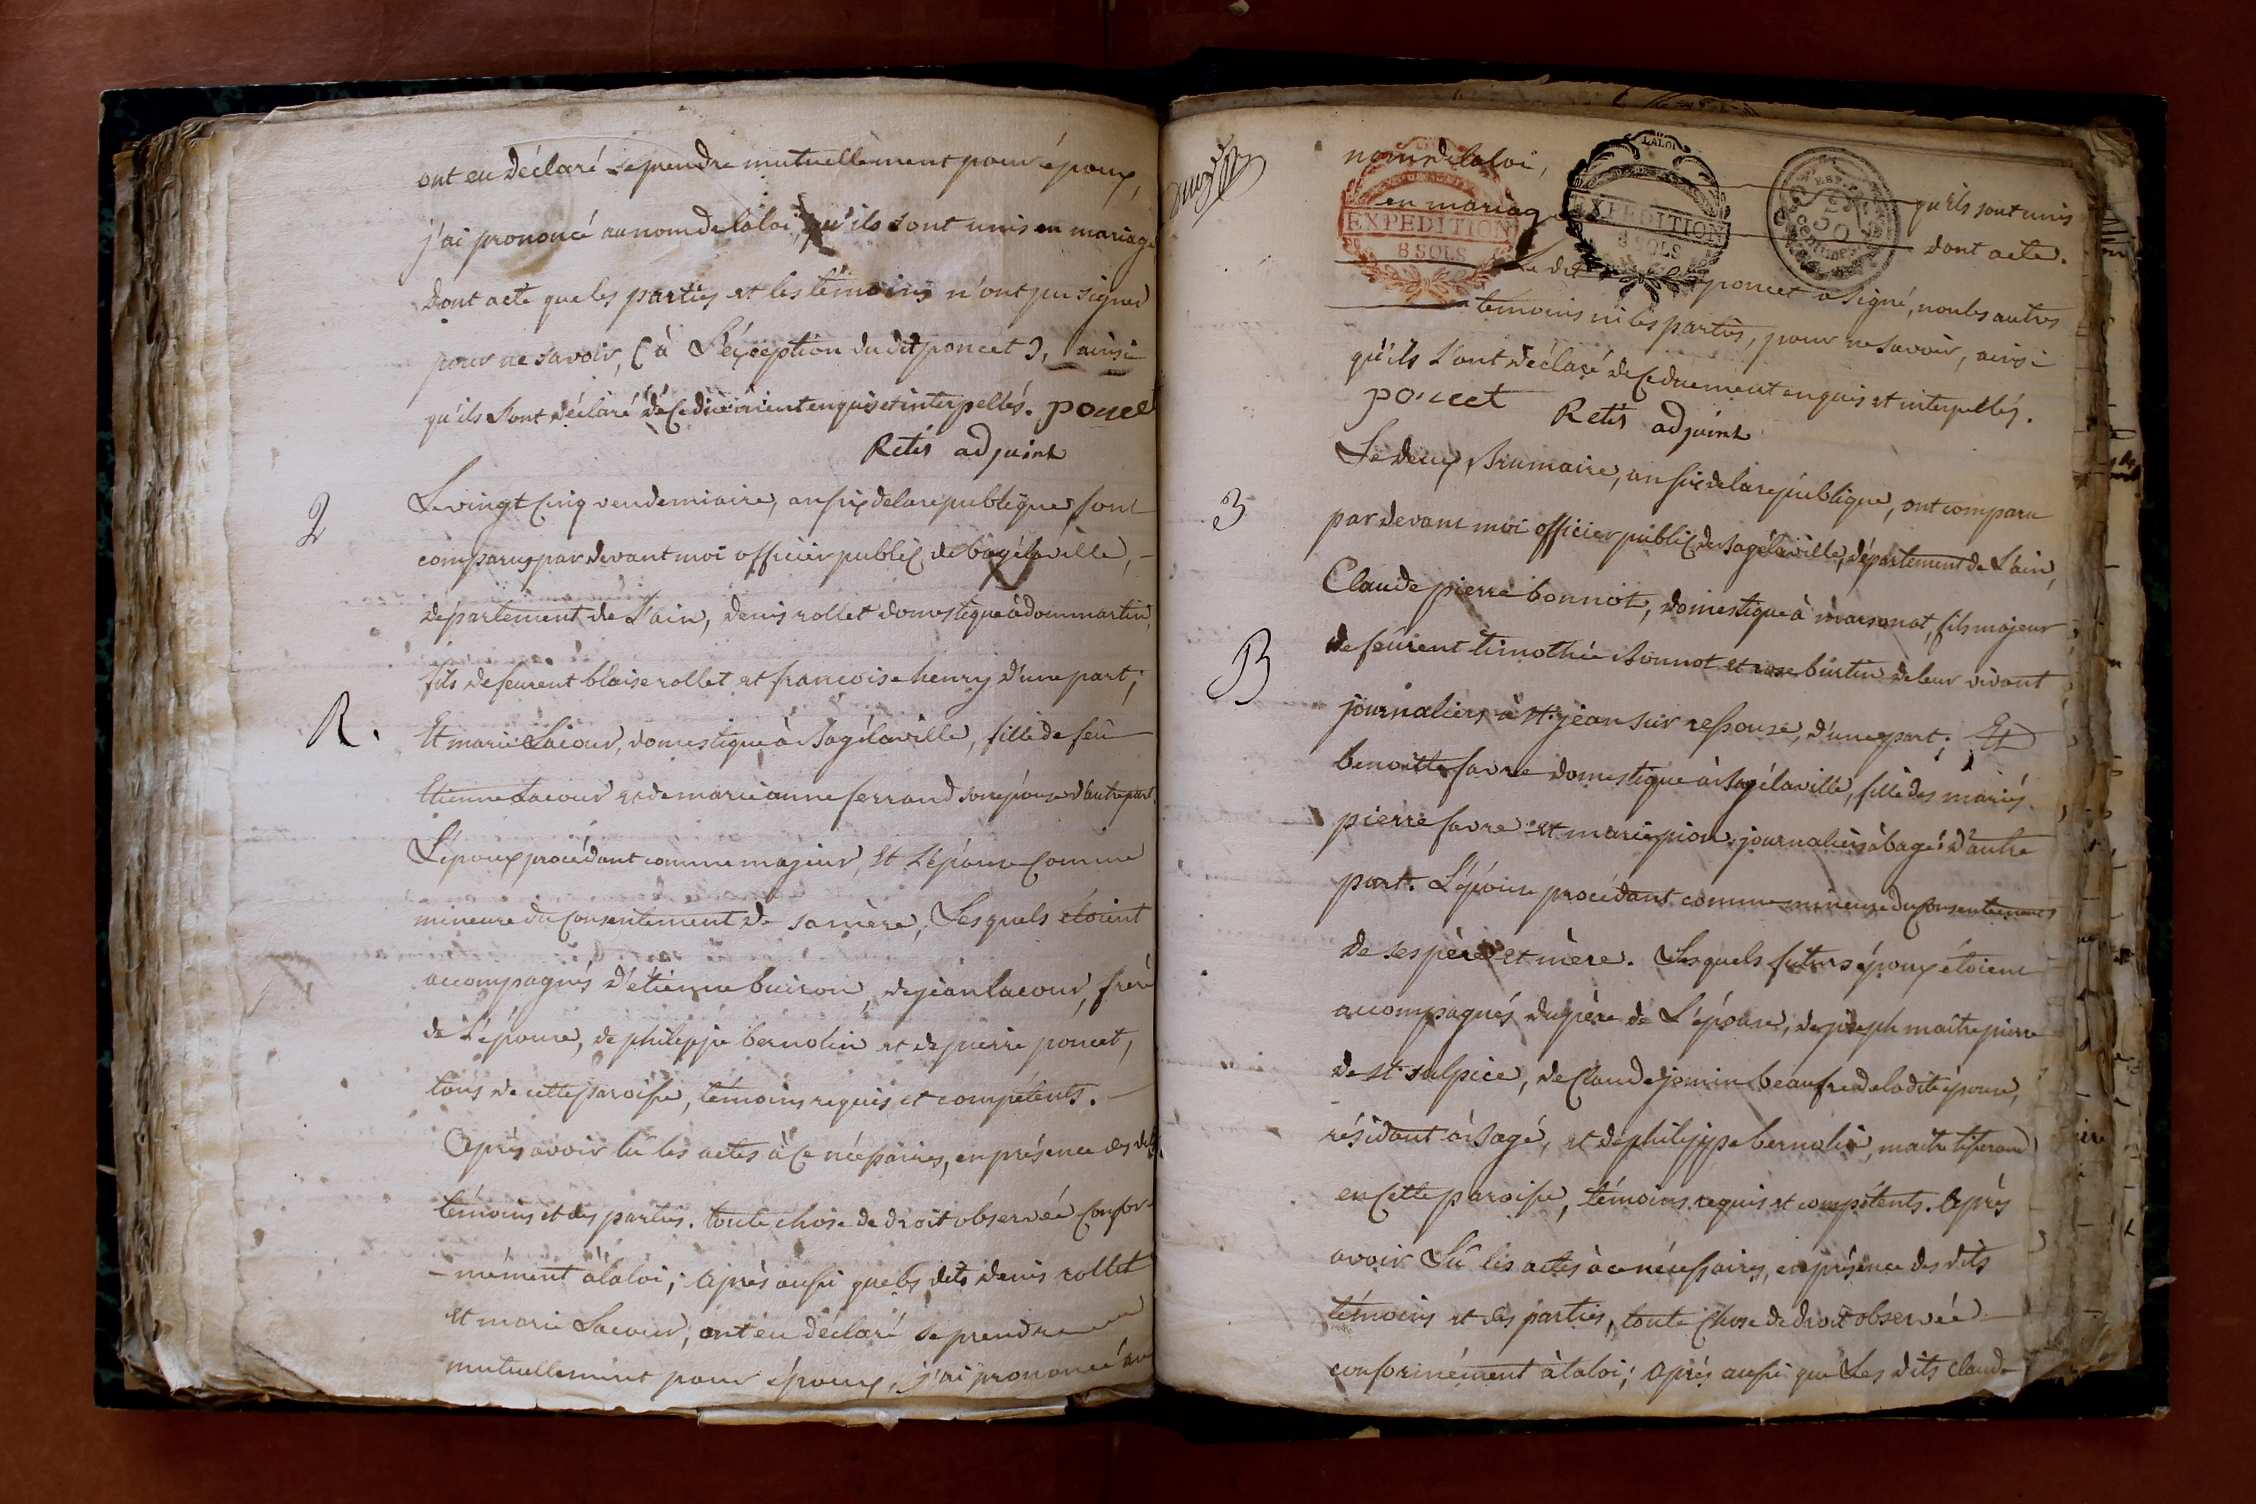 ont eu déclaré se prendre mutuellement pour époux,
j'ai prononcé au nom de la loi, qu'ils sont unis en mariage
dont acte que les parties et les témoins n'ont pu signer
pour ne savoir, (à L'éxception du dit poncet), ainsi
qu'ils l'ont déclaré de ce duement enquis et interpellés. poncet
Retis adjoint
2
Le vingt cinq vendemiaire, an six de la république sont
comparus par devant moi officier public de bagélaville,
département de L'ain, denis rollet domestique à dommartin,
fils de feurent blaise rollet et francoise henry d'une part;
R.
Et marie Lacour, domestique à Bagélaville, fille de feû
Etienne Lacour et de marie anne ferrand son épouse d'autre part.
L'époux procédant comme majeur, et L'épouse comme
mineure du consentement de sa mère, Lesquels étoient
accompagnés d'étienne buiron, de jean lacour, frère
de L'épouse, de philippe bernolin et de pierre poncet,
tous de cette paroisse, témoins requis et compétents.
Après avoir lû les actes à ce nécessaires, en présence des dits
témoins et des parties. toute chose de droit observée confor-
mément à la loi; Après aussi que les dits denis rollet
et marie Lacour, ont eu déclaré se prendre
mutuellement pour époux, j'ai prononcé au
nom de la loi,
LA LOI
qu'ils sont unis
en mariage
EXPEDITION
8 SOLS
EXPEDITION
8 SOLS
50
dont acte.
Le dit poncet a signé, non les autres
témoins ni les parties, pour ne savoir, ainsi
qu'ils l'ont déclaré de ce duement enquis et interpellés.
poncet
Retis adjoint
3
Le deux Brumaire, an six de la république, ont comparu
par devant moi officier public de Bagélaville, département de L'ain,
Claude pierre bonnot, domestique à marsonat, fils majeur
B
de feurent timothée Bonnot et rose burtin de leur vivant
journaliers à st. jean sur ressouse, d'une part; Et
benoitte favre domestique à Bagélaville, fille des mariés
pierre favre et marie pion journaliers à bagé d'autre
part. L'épouse procédant comme mineure du consentement
de ses père et mère. Lesquels futurs époux étoient
accompagnés du père de L'épouse, de joseph maitrepierre
de st. sulpice, de claude jomin beaufre de la dite épouse,
résidant à Bagé, et de philippe bernolin, maitre tisserand
en cette paroisse, témoins requis et compétents. Après
avoir Lû les actes à ce nécessaires, en présence des dits
témoins et des parties, toute chose de droit observée
conformément à la loi; Après aussi que Les dits claude